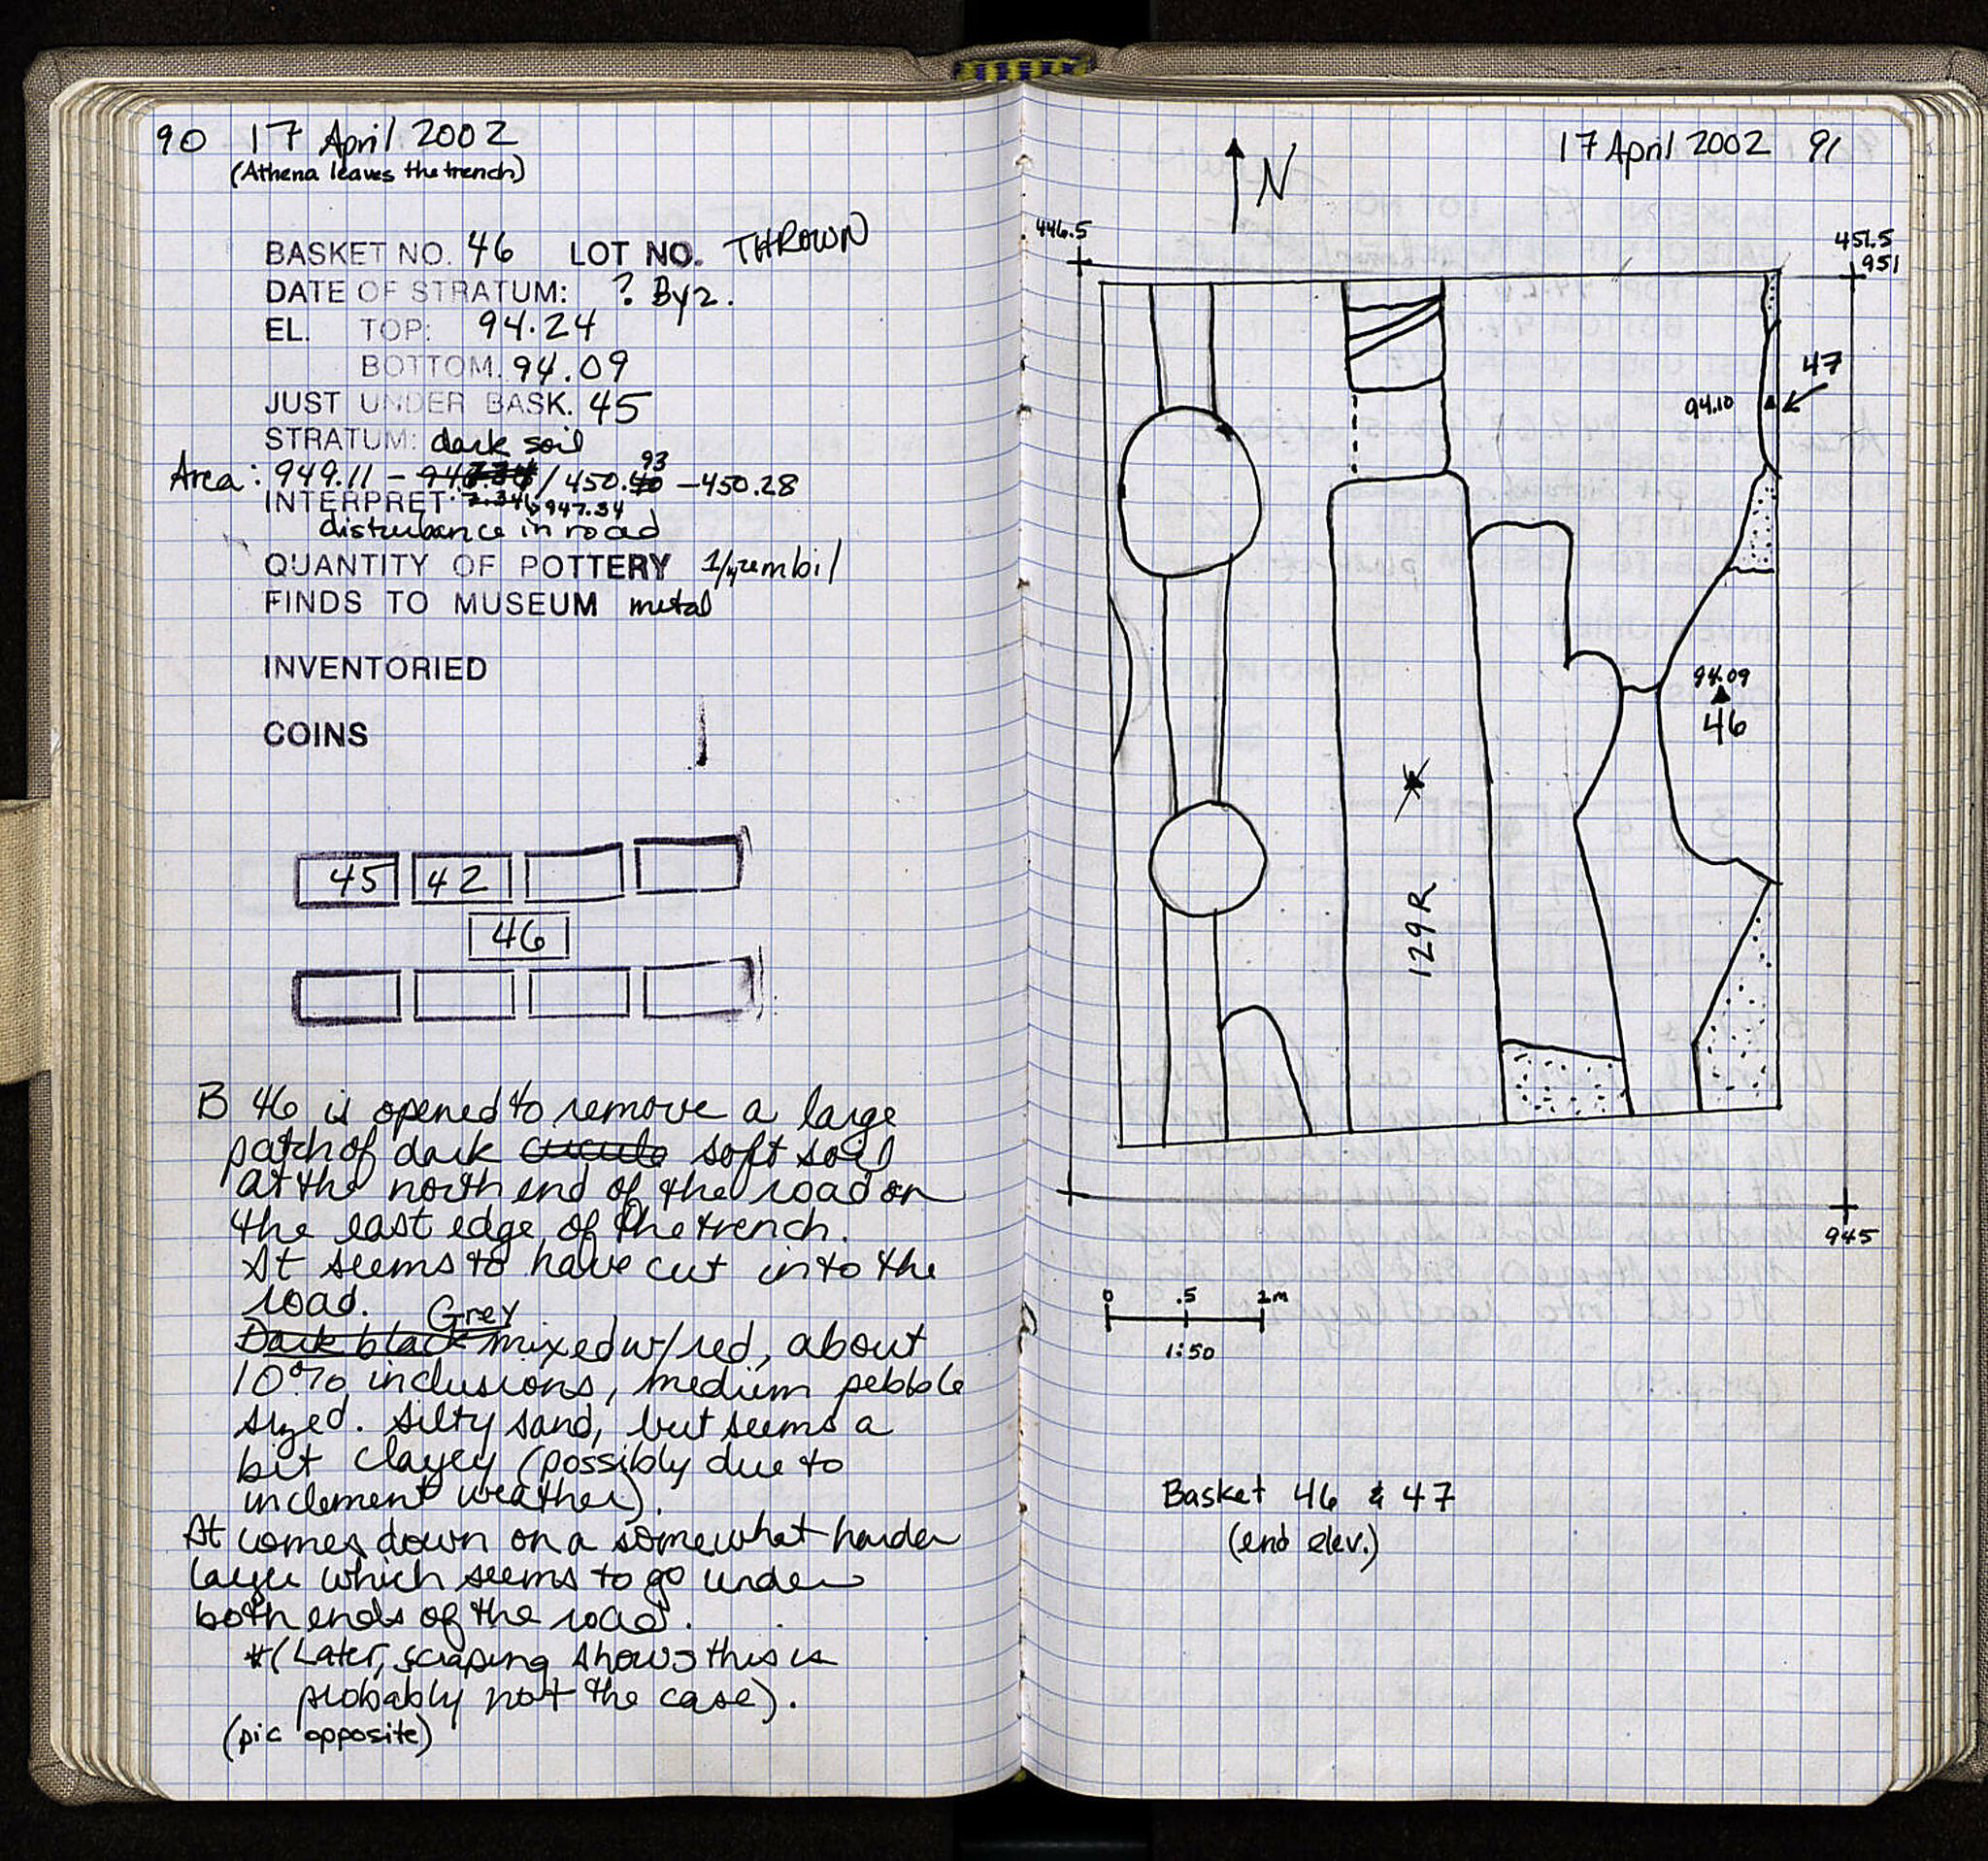 90 17 April 2002
(Athena leaves the trench)
BASKET NO. 46 LOT NO. THROWN
DATE OF STRATUM: ? Byz.
EL. TOP: 94.24
BOTTOM. 94.09
JUST UNDER BASK. 45
STRATUM: dark soil
93
Area: 949.11 - / 450. -450.28
INTERPRET: 947.34
disturbance in road
QUANTITY OF POTTERY 1/4 zembil
FINDS TO MUSEUM metal
INVENTORIED
COINS
45 42
46
B 46 is opened to remove a large
patch of dark soft soil
at the north end of the road on
the east edge of the trench.
It seems to have cut into the
road. Grey
Dark black mixed w/ red, about
10% inclusions, medium pebble
sized. silty sand, but seems a
bit clayey (possibly due to
inclement weather).
It comes down on a somewhat harder
layer which seems to go under
both ends of the road.
*(Later, scraping shows this is
probably not the case).
(pic opposite)
17 April 2002 91
N
446.5
451.5
951
47
94.10
94.09
46
129R
945
0 .5 1m
1:50
Basket 46 & 47
(end elev.)